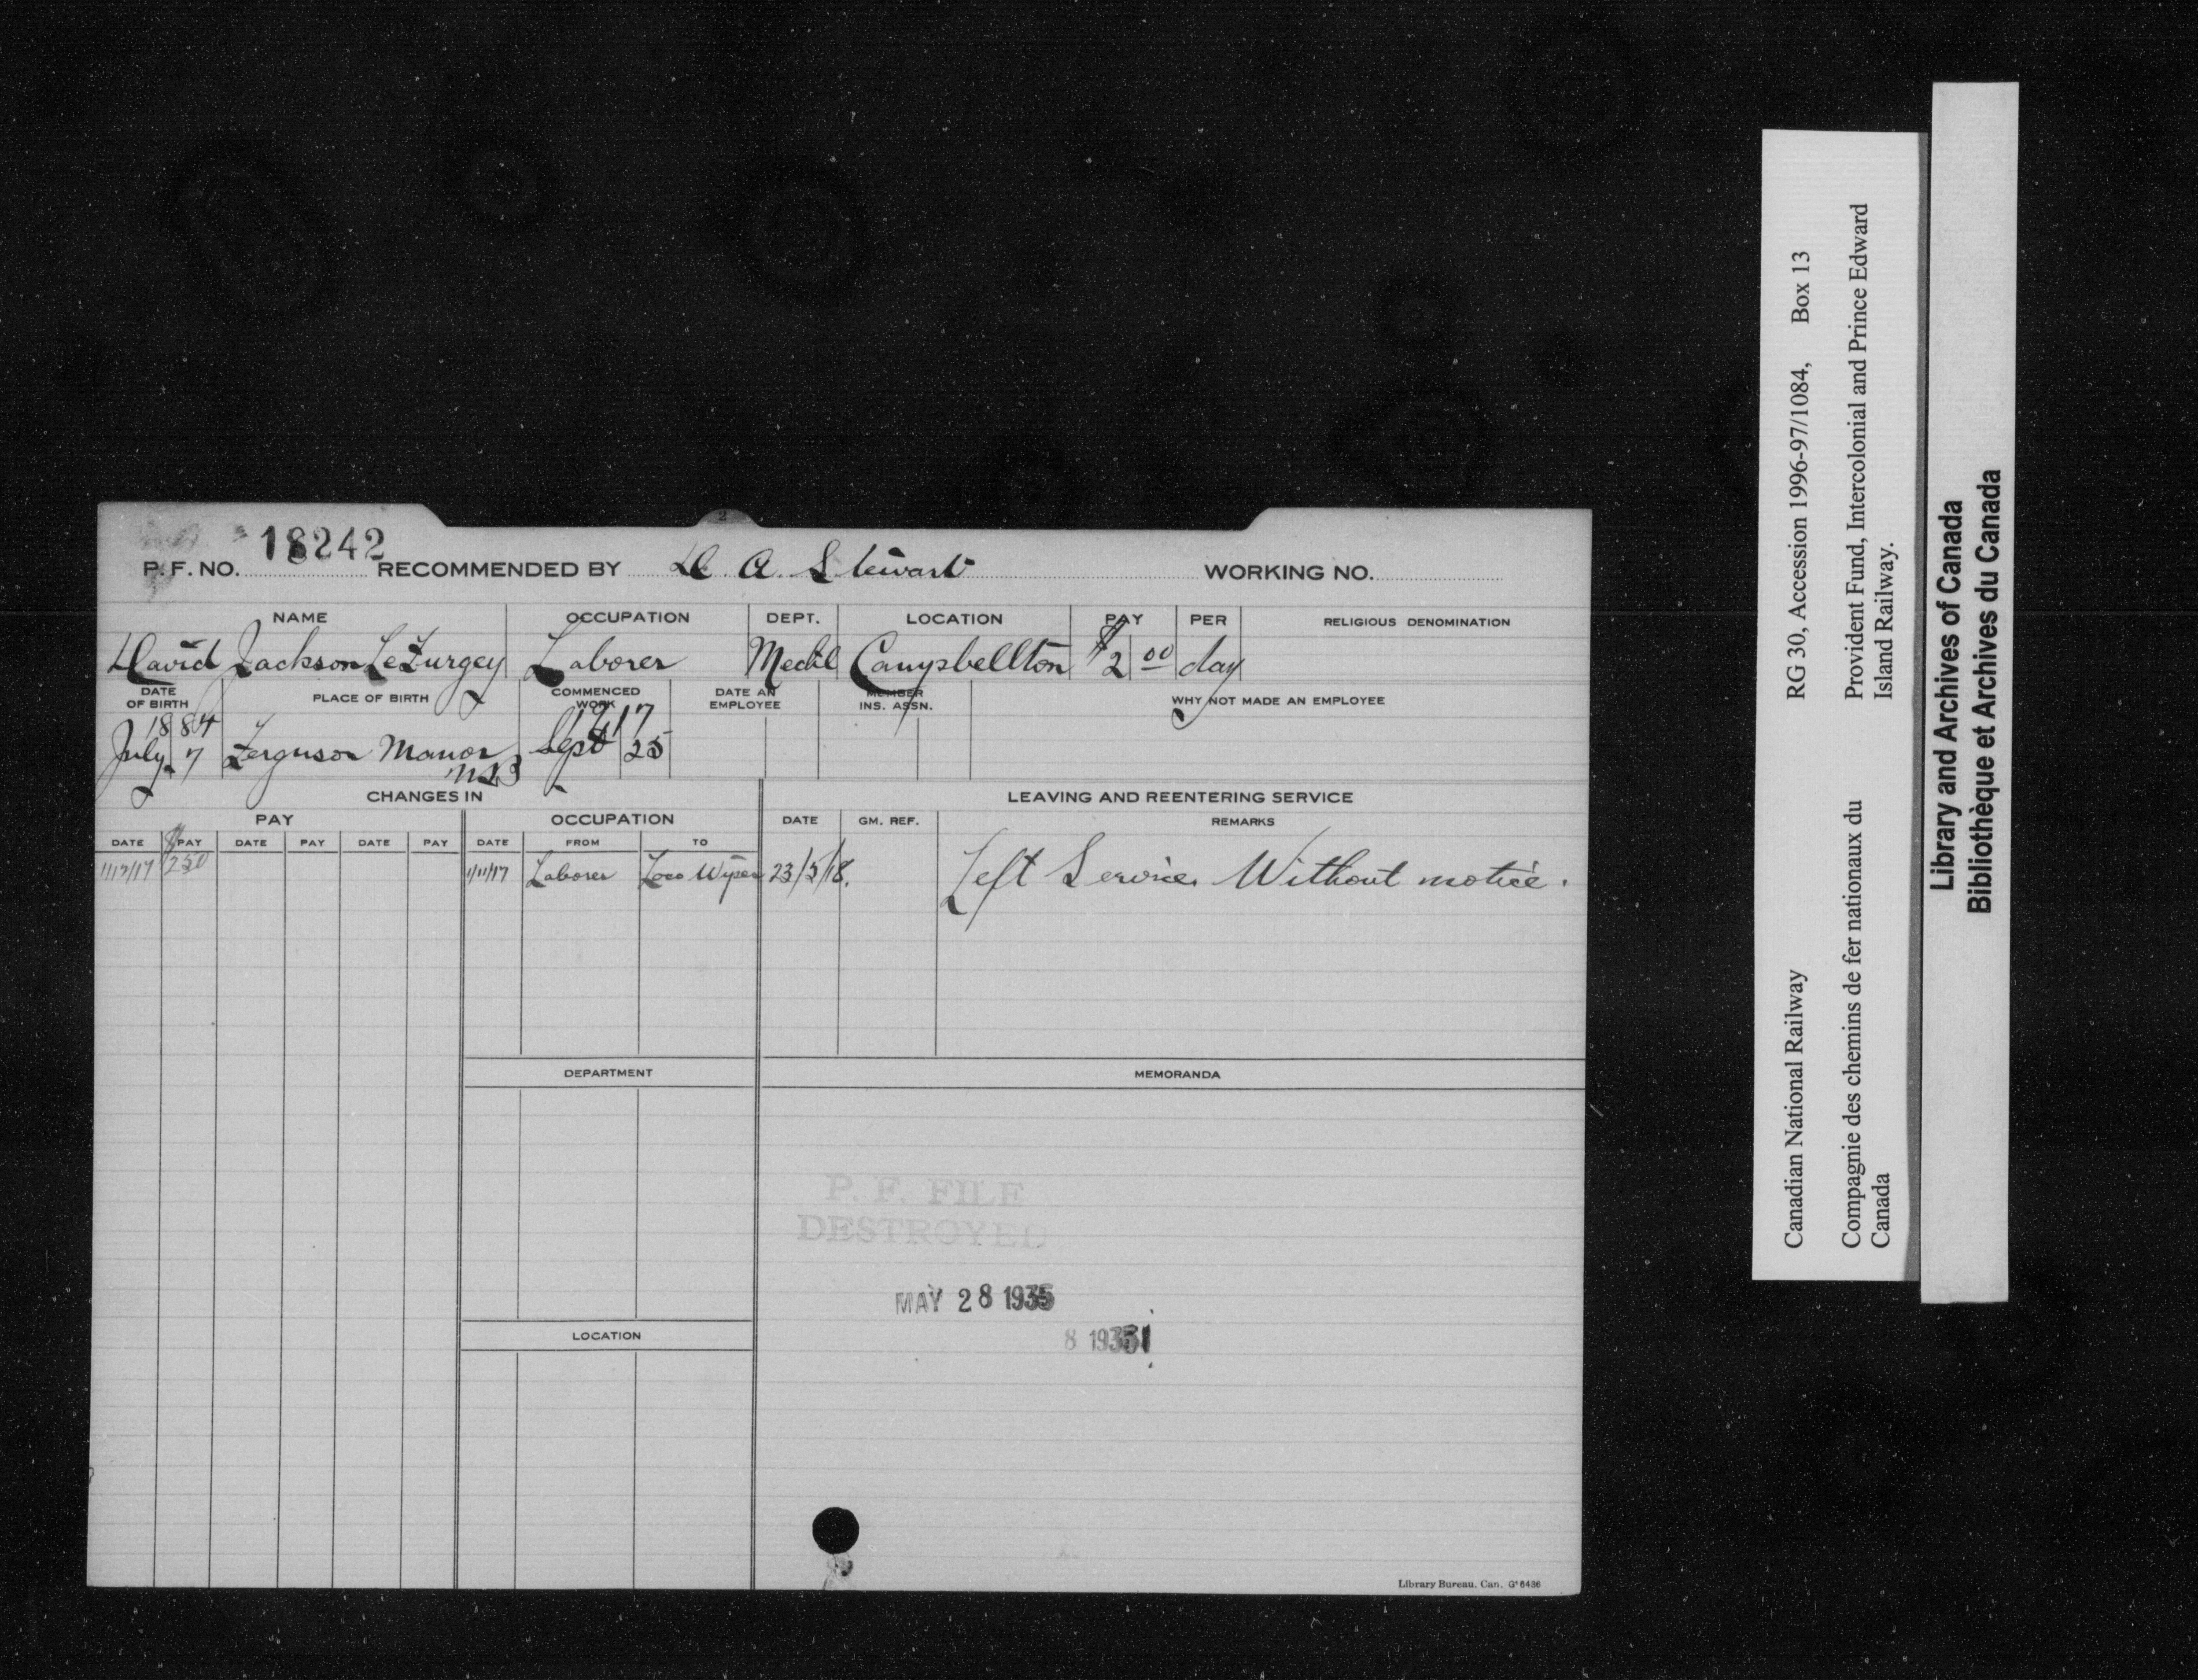 18242
P. F. NO. RECOMMENDED BY D. A. Stewart WORKING NO.
NAME OCCUPATION DEPT. LOCATION PAY PER RELIGIOUS DENOMINATION
David Jackson LeFurgey Laborer Mechl Campbellton $2 00 day
DATE OF BIRTH PLACE OF BIRTH COMMENCED WORK DATE AN EMPLOYEE MEMBER INS. ASSN. WHY NOT MADE AN EMPLOYEE
1884 1917
July 7 Ferguson Manor Sept 25
N.B
CHANGES IN LEAVING AND REENTERING SERVICE
PAY OCCUPATION DATE GM. REF. REMARKS
DATE PAY DATE PAY DATE PAY DATE FROM TO
1/12/17 $250 1/11/17 Laborer Loco Wiper 23/5/18. Left Service Without notice.
DEPARTMENT MEMORANDA
P. F. FILE
DESTROYED
MAY 28 1935
LOCATION
8 1935
Library Bureau. Can. G*6436
Canadian National Railway RG 30, Accession 1996-97/1084, Box 13
Compagnie des chemins de fer nationaux du Provident Fund, Intercolonial and Prince Edward
Canada Island Railway.
Library and Archives of Canada
Bibliothèque et Archives du Canada